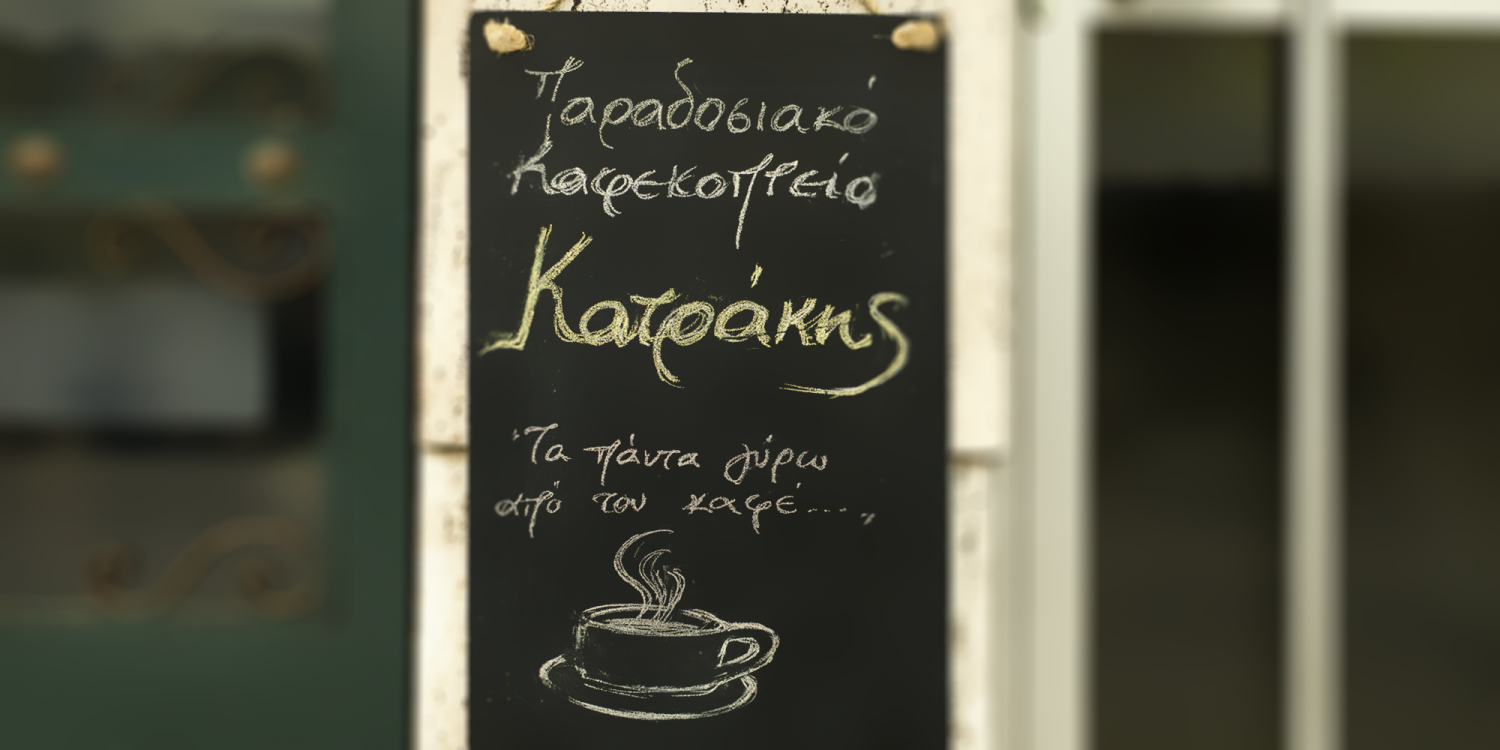 Παραδοσιακό
Καφεκοπτείο
Κατράκης
"Τα πάντα γύρω
από τον καφέ...."